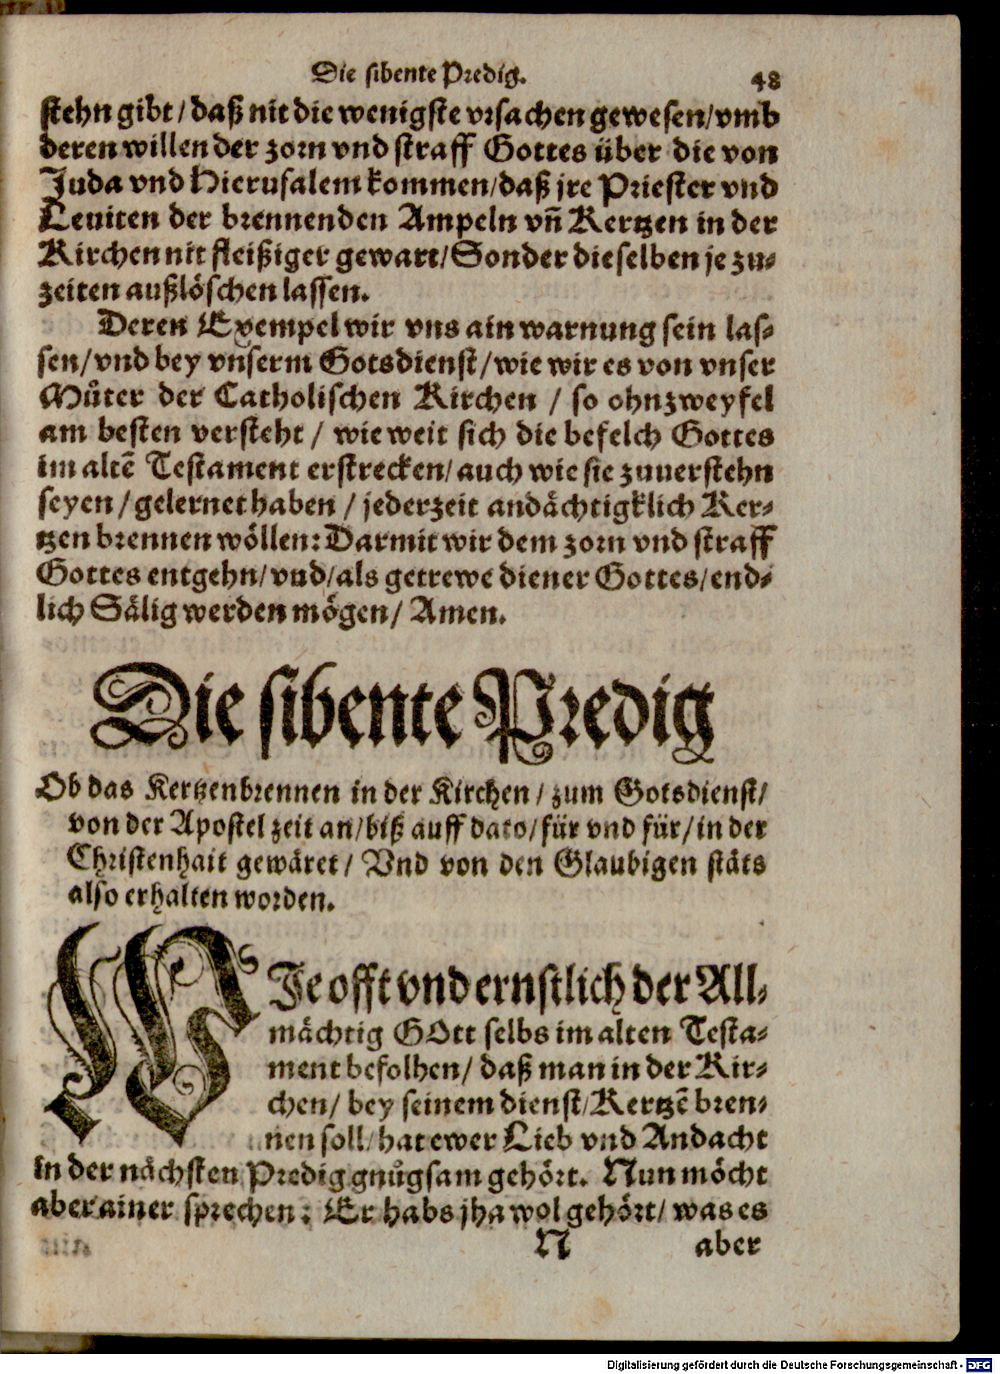 Die sibente Predig. 48
stehn gibt / daß nit die wenigste vrsachen gewesen / vmb
deren willen der zorn vnd straff Gottes über die von
Juda vnd Hierusalem kommen / daß jre Priester vnd
Leuiten der brennenden Ampeln vñ Kertzen in der
Kirchen nit fleißiger gewart / Sonder dieselben je zu-
zeiten außlöschen lassen.
Deren Exempel wir vns ain warnung sein las-
sen / vnd bey vnserm Gotsdienst / wie wir es von vnser
Můter der Catholischen Kirchen / so ohnzweyfel
am besten versteht / wie weit sich die befelch Gottes
im altē Testament erstrecken / auch wie sie zuuerstehn
seyen / gelernet haben / jederzeit andächtigklich Ker-
tzen brennen wöllen: Darmit wir dem zorn vnd straff
Gottes entgehn / vnd / als getrewe diener Gottes / end-
lich Sälig werden mögen / Amen.
Die sibente Predig
Ob das Kertzenbrennen in der Kirchen / zum Gotsdienst /
von der Apostel zeit an / biß auff dato / für vnd für / in der
Christenhait gewäret / Vnd von den Glaubigen stäts
also erhalten worden.
WJe offt vnd ernstlich der All-
mächtig GOtt selbs im alten Testa-
ment befolhen / daß man in der Kir-
chen / bey seinem dienst / Kertzē bren-
nen soll / hat ewer Lieb vnd Andacht
in der nächsten Predig gnůgsam gehört. Nun möcht
aber ainer sprechen: Er habs jha wol gehört / was es
N aber
Digitalisierung gefördert durch die Deutsche Forschungsgemeinschaft - DFG